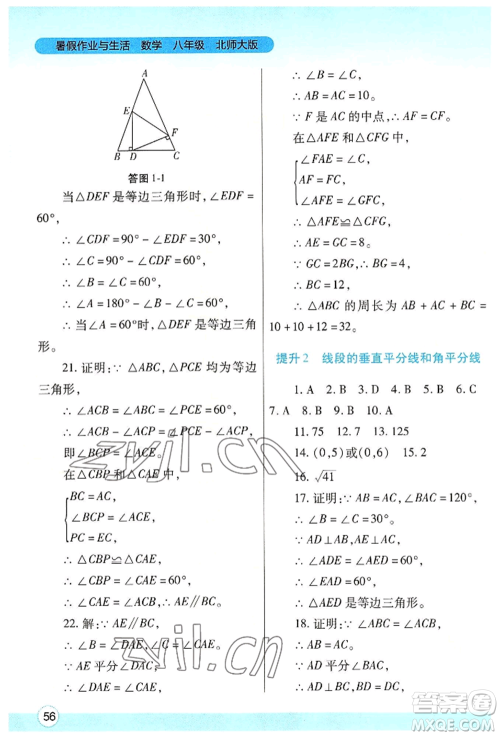 暑假作业与生活 数学 八年级 北师大版
A
E
F
B D C
答图 1-1
当△DEF 是等边三角形时,∠EDF=
60°,
∴ ∠CDF=90°-∠EDF=30°,
∴ ∠C=90°-∠CDF=60°,
∴ ∠A=180°-∠B-∠C=60°,
∴ 当△DEF 是等边三角形时,∠A=
60°.
21. 证明:∵ △ABC,△PCE 均为等边
三角形,
∴ ∠ACB=∠ABC=∠PCE=60°,
∴ ∠ACB-∠PCA=∠PCE-∠PCA,
∴ ∠BCP=∠ACE.
在△CBP 和△CAE 中,
BC=AC,
∠BCP=∠ACE,
PC=EC,
∴ △CBP≌△CAE,
∴ ∠CAE=∠CBP=60°,
∴ ∠CAE=∠ACB=60°,
∴ AE∥BC.
22. 解:∵ AE∥BC,
∴ ∠B=∠DAE,∠C=∠CAE.
∵ AE 平分∠DAC,
∴ ∠DAE=∠CAE,
∴ ∠B=∠C,
∴ AB=AC=10。
∵ F 是 AC 的中点,
∴ AF=CF.
在△AFE 和△CFG 中,
∠FAE=∠C,
AF=FC,
∠AFE=∠GFC,
∴ △AFE≌△CFG,
∴ AE=GC=8。
∵ GC=2BG,∴ BG=4,
∴ BC=12,
∴ △ABC 的周长为 AB+AC+BC=
10+10+12=32。
提升 2 线段的垂直平分线和角平分线
1. A 2. B 3. D 4. A 5. B 6. B
7. A 8. B 9. B 10. A
11. 75 12. 7 13. 125
14. (0,5)或(0,6) 15. 2
16. √41
17. 证明:∵ AB=AC,∠BAC=120°,
∴ ∠B=∠C=30°.
∵ AD⊥AB,AE⊥AC,
∴ ∠ADB=∠AEC=60°,
∴ AD=AE,
∴ △AED 是等边三角形.
18. 证明:∵ AB=AC,
∴ ∠B=∠C.
∵ AD 平分∠BAC,
∴ AD⊥BC,
∴ ∠BAD+∠B=90°.
56
zyjl.cn
zyjl.cn
答案圈
MXQE.COM